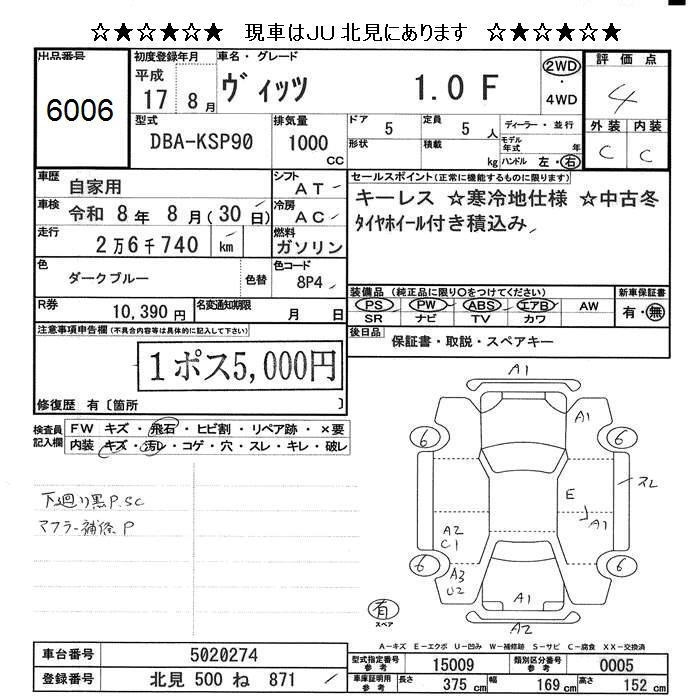 ☆★☆★☆★ 現車はJU北見にあります ☆★☆★☆★
出品番号
6006
初度登録年月
平成
17 8月
車名・グレード
ヴィッツ 1.0 F
2WD
・
4WD
評価点
4
外装 内装
C C
型式
DBA-KSP90
排気量
1000
CC
ドア 5
形状
定員 5 人
積載 kg
ディーラー・並行
モデル年式 年
ハンドル 左・右
車歴 自家用
シフト AT
車検 令和 8年 8月(30日)
冷房 AC
走行 2万6千740 km
燃料 ガソリン
色 ダークブルー 色替
色コード 8P4
R券 10,390円
名変通知期限 月 日
セールスポイント(正常に機能するものに限ります)
キーレス ☆寒冷地仕様 ☆中古冬
タイヤホイール付き積込み
装備品(純正品に限り○をつけてください)
PS PW ABS エアB AW
SR ナビ TV カワ
新車保証書
有・無
後日品 保証書・取説・スペアキー
注意事項申告欄(不具合内容等は具体的に記入して下さい)
1ポス5,000円
修復歴 有〔箇所 〕
検査員記入欄
FW キズ・飛石・ヒビ割・リペア跡・×要
内装 キズ・汚レ・コゲ・穴・スレ・キレ・破レ
下廻り黒P.SC
マフラー補修P
A1
A1
6
6
スレ
E
A1
A2
C1
6
A3
U2
6
A1
A2
有
スペア
A-キズ E-エクボ U-凹み W-補修跡 S-サビ C-腐食 XX-交換済
車台番号 5020274
登録番号 北見 500 ね 871
型式指定番号 参考 15009
類別区分番号 参考 0005
車庫証明用 参考
長さ 375 cm 幅 169 cm 高さ 152 cm